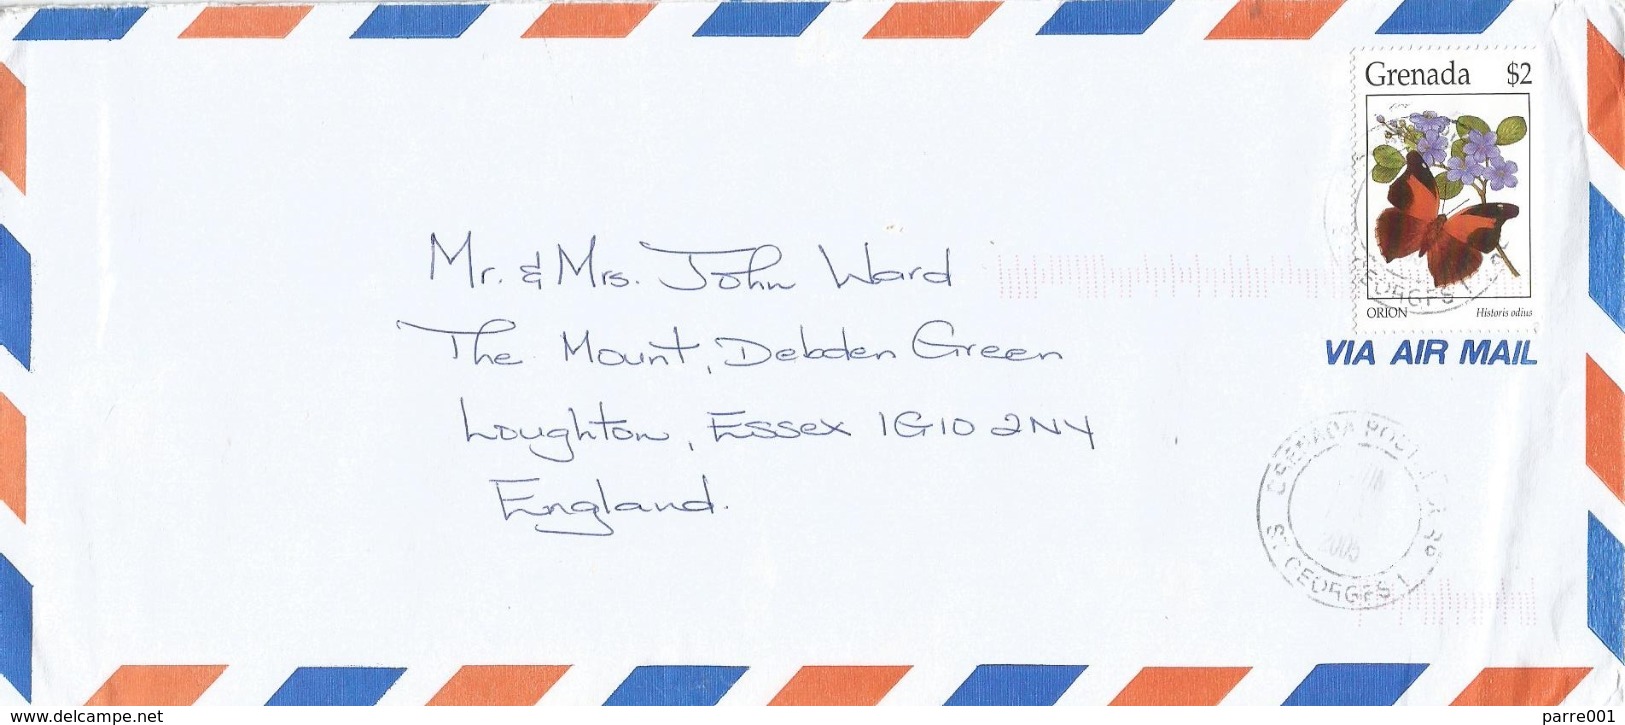 Grenada $2
ORION Historis odius
VIA AIR MAIL
Mr. & Mrs. John Ward
The Mount, Debden Green
Loughton, Essex IG10 2NY
England.
GRENADA
ST. GEORGES 1
2005
www.delcampe.net
parre001